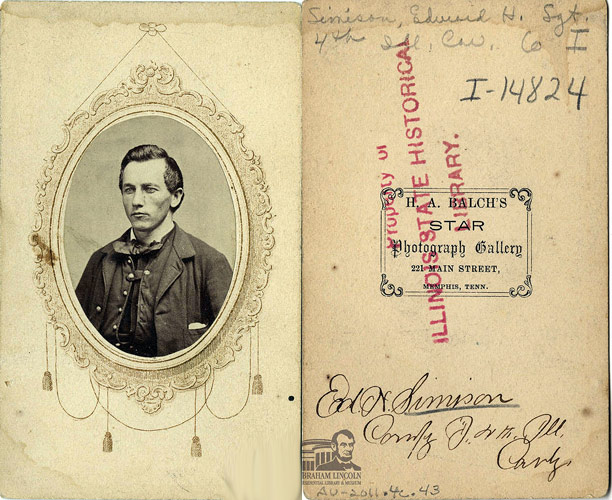 Simison, Edward H. Sgt.
4th Ill. Cav. Co I
I-14824
Property of
ILLINOIS STATE HISTORICAL
LIBRARY.
H. A. BALCH'S
STAR
Photograph Gallery
221 MAIN STREET,
MEMPHIS, TENN.
Ed H. Simison
Comp I. 4th. Ill.
Cavly
ABRAHAM LINCOLN
PRESIDENTIAL LIBRARY & MUSEUM
AV-2011.4c.43